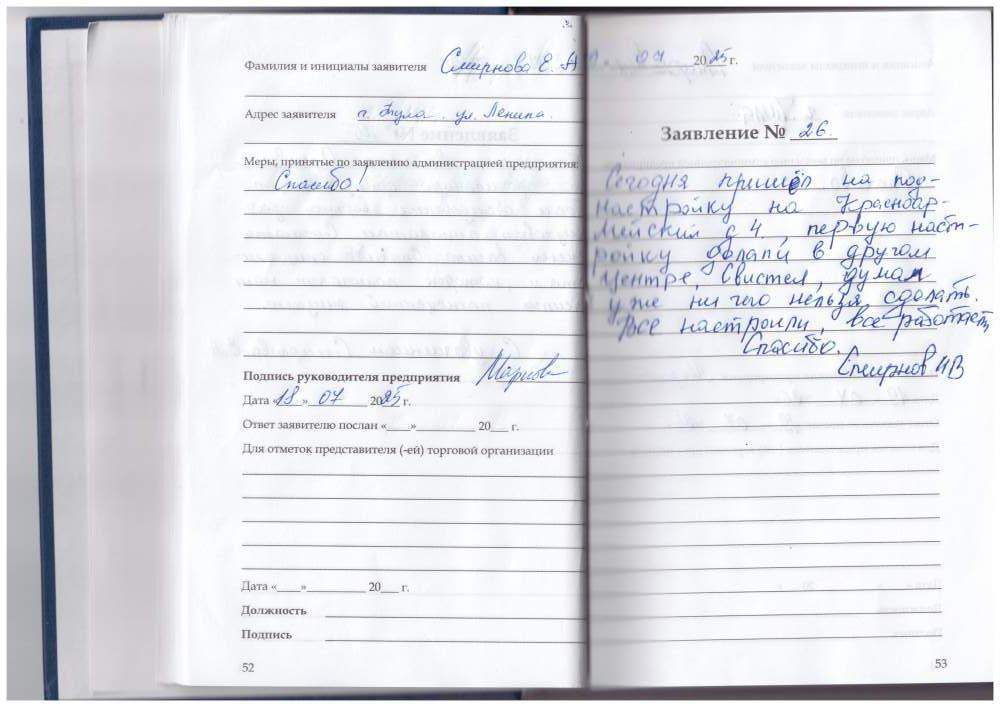 Фамилия и инициалы заявителя Смирнова Е. А
Адрес заявителя г. Тула. ул. Ленина.
Меры, принятые по заявлению администрацией предприятия:
Спасибо!
Подпись руководителя предприятия
Дата «18» 07 2025 г.
Ответ заявителю послан «___»__________ 20___ г.
Для отметок представителя (-ей) торговой организации
Дата «____»__________ 20___ г.
Должность
Подпись
52
07 2025 г.
Заявление № 26.
Сегодня пришёл на под-
настройку на Красноар-
мейский д 4. , первую наст-
ройку делали в другом
центре, Свистел, думал
уже ничего нельзя сделать.
Все настроили, все работает,
Спасибо.
Смирнов НВ
53